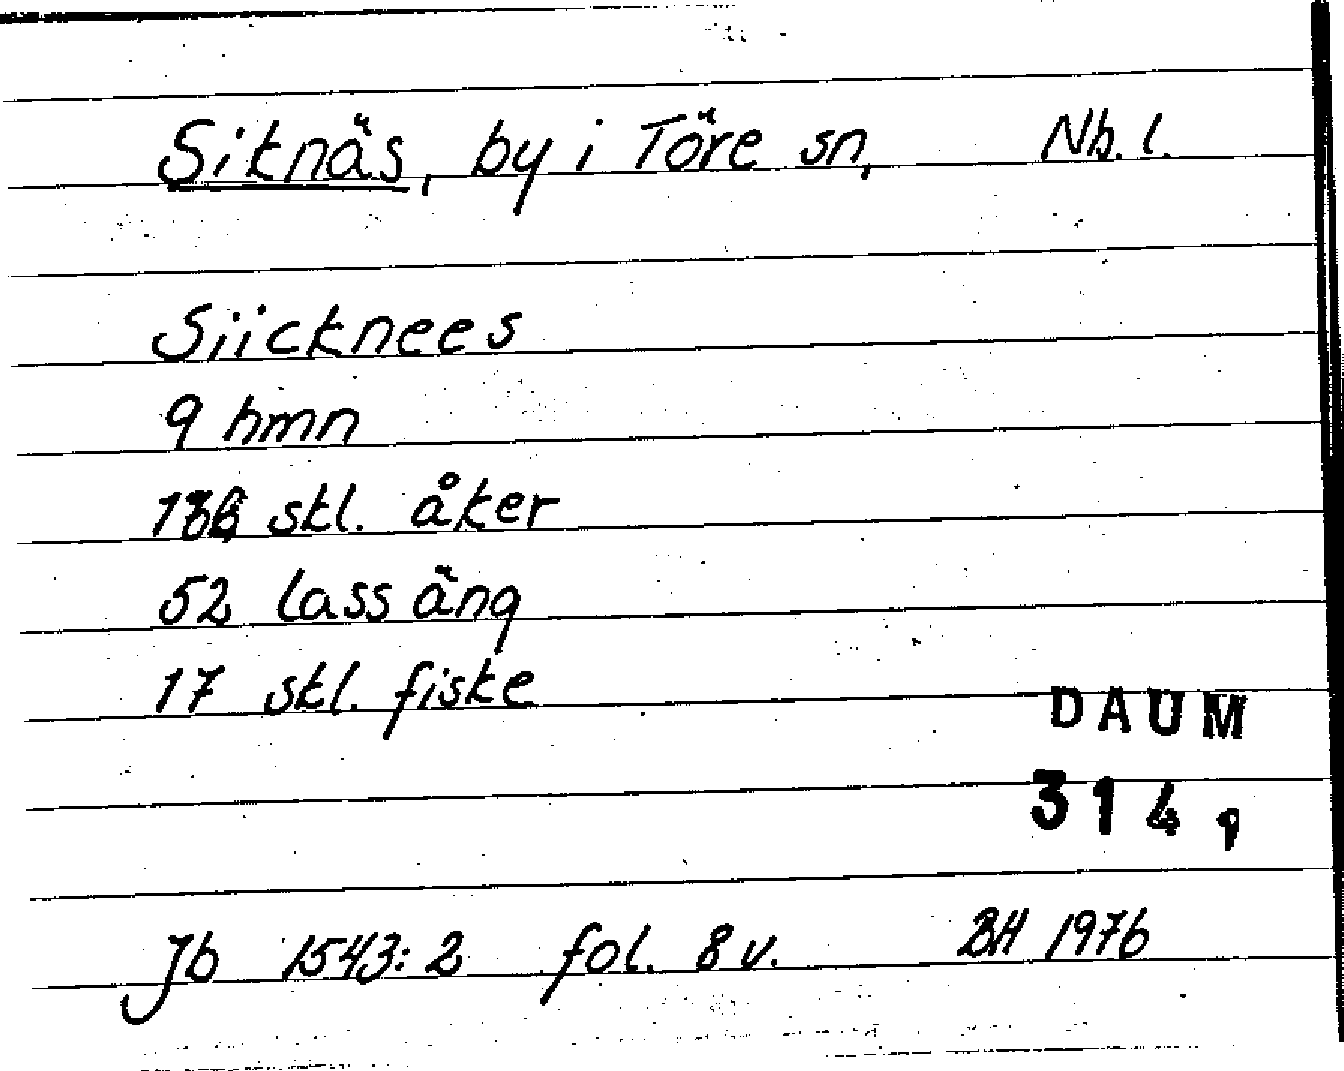 Siknäs, by i Töre sn, Nb. l.
Siicknees
9 hmn
skl. åker
52 lass äng
17 skl. fiske
DAUM
314,
Jb 1543:2 fol. 8 v. BH 1976